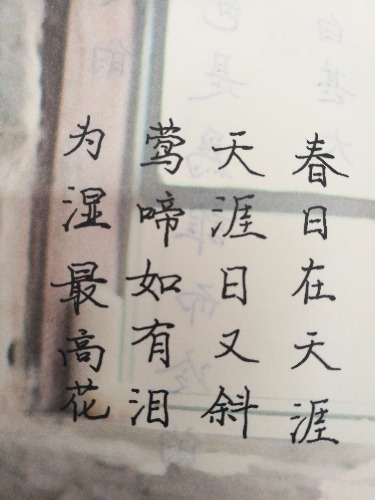 春日在天涯
天涯日又斜
莺啼如有泪
为湿最高花